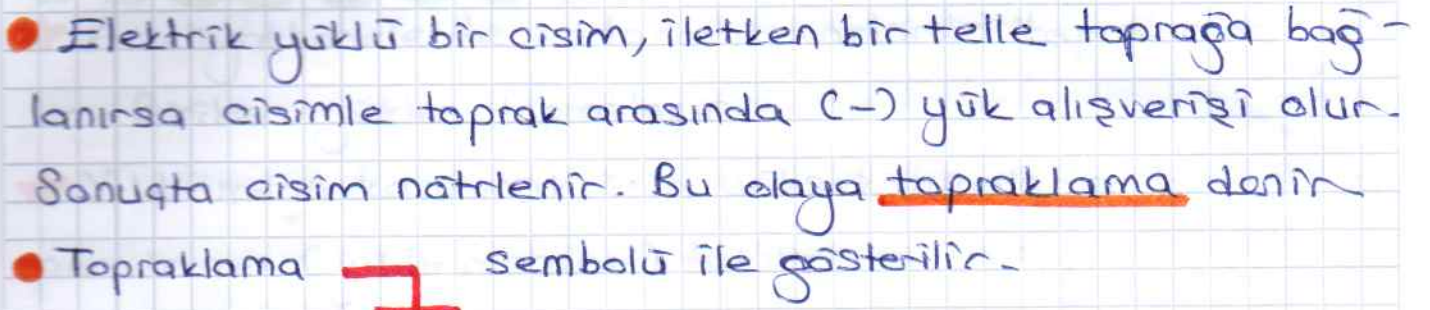 Elektrik yüklü bir cisim, iletken bir telle toprağa bağ-
lanırsa cisimle toprak arasında (-) yük alışverişi olur.
Sonuçta cisim nötrlenir. Bu olaya topraklama denir
Topraklama sembolü ile gösterilir.